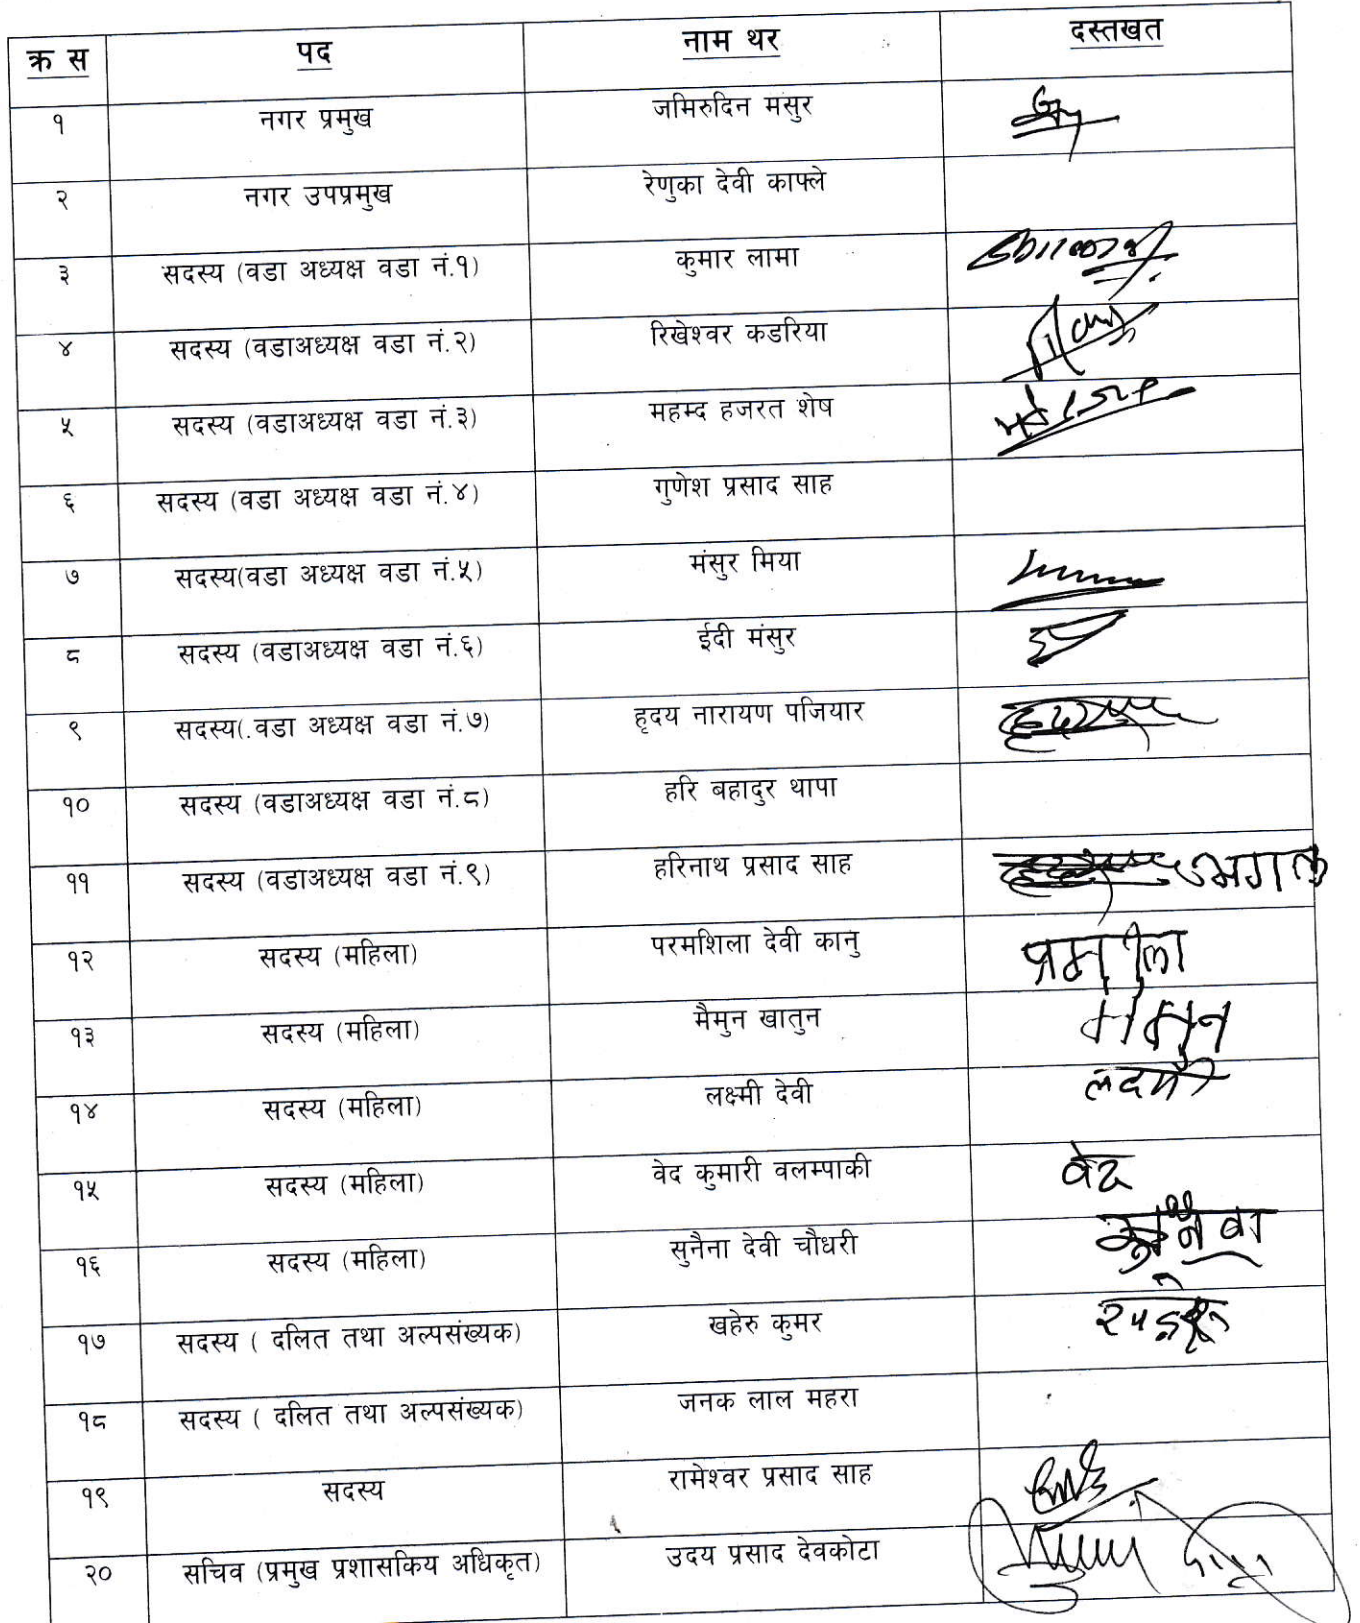 क्र स पद नाम थर दस्तखत
१ नगर प्रमुख जमिरुदिन मंसुर
२ नगर उपप्रमुख रेणुका देवी काफ्ले
३ सदस्य (वडा अध्यक्ष वडा नं.१) कुमार लामा
४ सदस्य (वडाअध्यक्ष वडा नं.२) रिखेश्वर कडरिया
५ सदस्य (वडाअध्यक्ष वडा नं.३) महम्द हजरत शेष
६ सदस्य (वडा अध्यक्ष वडा नं.४) गुणेश प्रसाद साह
७ सदस्य(वडा अध्यक्ष वडा नं.५) मंसुर मिया
८ सदस्य (वडाअध्यक्ष वडा नं.६) ईदी मंसुर
९ सदस्य(.वडा अध्यक्ष वडा नं.७) हृदय नारायण पजियार
१० सदस्य (वडाअध्यक्ष वडा नं.८) हरि बहादुर थापा
११ सदस्य (वडाअध्यक्ष वडा नं.९) हरिनाथ प्रसाद साह
१२ सदस्य (महिला) परमशिला देवी कानु
१३ सदस्य (महिला) मैमुन खातुन
१४ सदस्य (महिला) लक्ष्मी देवी
१५ सदस्य (महिला) वेद कुमारी वलम्पाकी वेद
१६ सदस्य (महिला) सुनैना देवी चौधरी
१७ सदस्य ( दलित तथा अल्पसंख्यक) खहेरु कुमर
१८ सदस्य ( दलित तथा अल्पसंख्यक) जनक लाल महरा
१९ सदस्य रामेश्वर प्रसाद साह
२० सचिव (प्रमुख प्रशासकिय अधिकृत) उदय प्रसाद देवकोटा